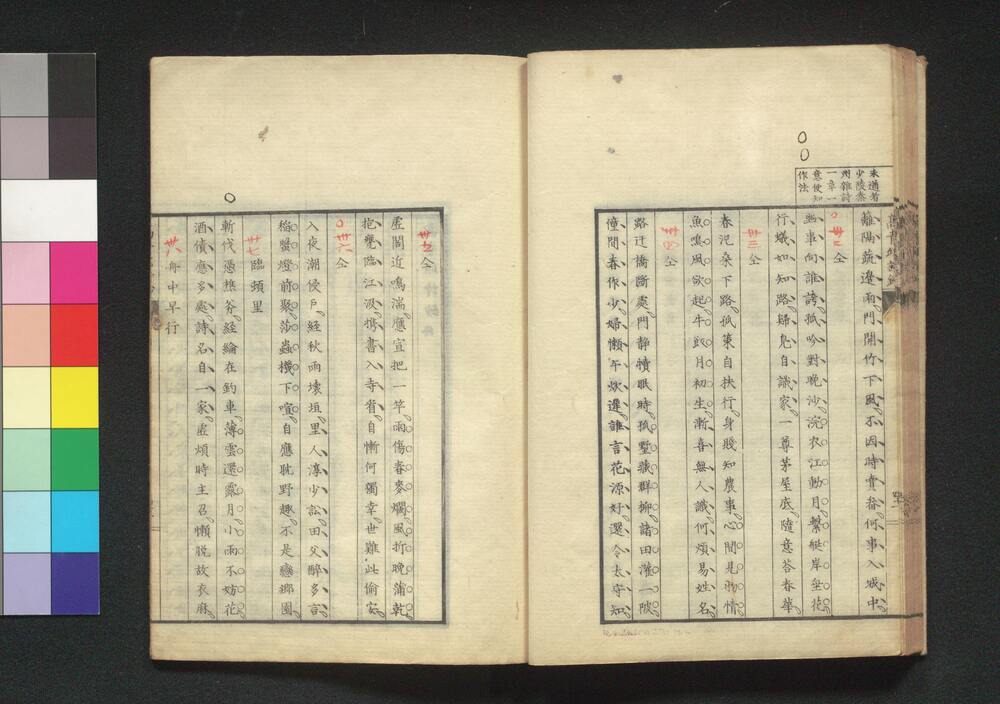 未適若
少陵秦
州雜詩
一章一
意使知
作法
離陽蓺遼雨門開竹下風不因時賣畚何事入城中
卌二 仝
幽事向誰誇孤吟對晚沙浣衣江動月繫艇岸垂花
行蟻如知路歸鳧自識家一尊茅屋底隨意答春華
卌三 仝
春泥桑下路孤策自扶行身賤知農事心閒見物情
魚鳴風欲起牛臥月初生漸喜無人識何煩易姓名
卌四 仝
路迂橋斷處門静犢眠時孤墅藏群柳諸田灌一陂
僮閒春作少婦懶午炊遲誰言花源好還令太守知
卌五 仝
虛閣近鳴湍應宜把一竿雨傷春麥爛風折晚蒲乾
抱甕臨江汲携書入寺看自慚何獨幸世難此偷安
卌六 仝
入夜潮侵戶經秋雨壞垣里人淳少訟田父醉多言
稻蟹燈前聚莎蟲機下喧自應耽野趣不是戀鄉園
卌七 臨頓里
斬伐憑樵斧經綸在釣車薄雲還露月小雨不妨花
酒債應多處詩名自一家虛煩時主召懶脫故衣麻
卌八 舟中早行